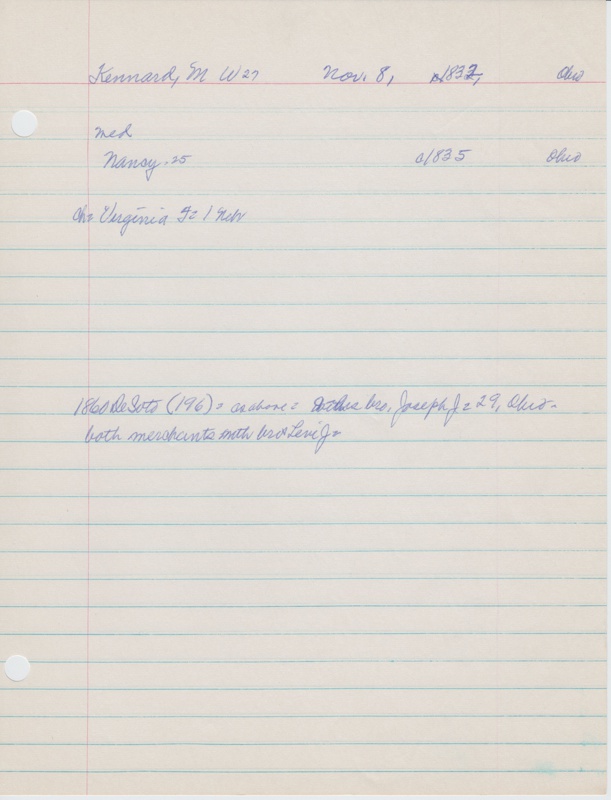 Kennard, M W 27 Nov. 8, 1832, Ohio
med
Nancy - 25 a/835 Ohio
Ch = Virginia F = 1 Nebr
1860 DeSoto (196) = as above = bro. Joseph J = 29, Ohio -
both merchants with bro Levi J =